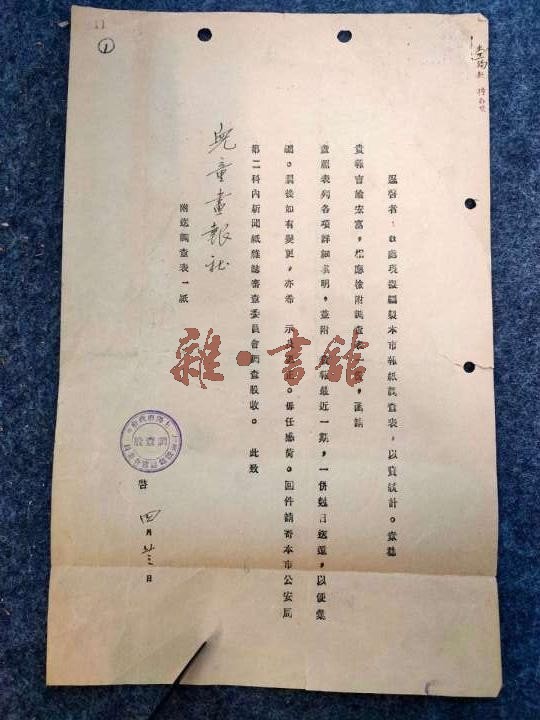 11
①
逕啓者：敝處現擬編製本市報紙調查表，以資統計。素稔
貴報言論宏富，相應檢附調查表一紙，函請
查照表列各項詳細填明，並附 貴報最近一期，一併尅日送還，以便彙
編。嗣後如有變更，亦希 示及更正。毋任感荷。回件請寄本市公安局
第二科內新聞紙雜誌審查委員會調查股收。 此致
兒童畫報社
附送調查表一紙
調查股
啓 四月廿三日
雜·書館